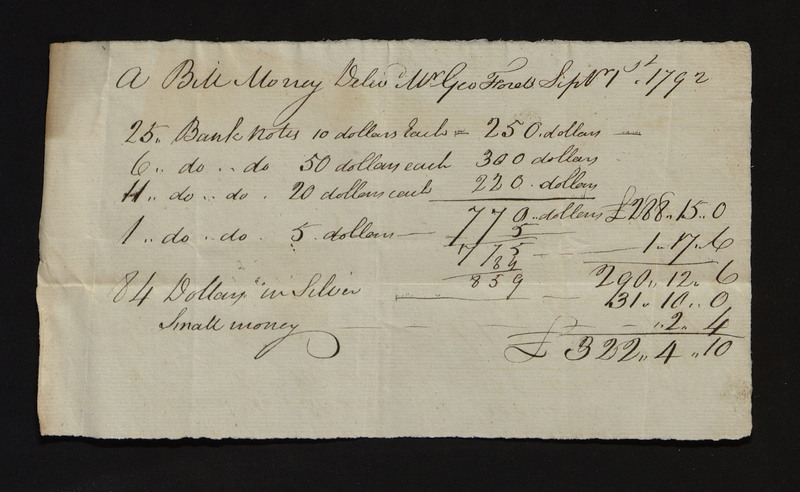 A Bill Money Deliv'd Mr Geo Fends Sept'r 1st. 1792
25,, Bank notes 10 dollars Each = 250. dollars —
6,, do .. do 50 dollars each 300 dollars
11,, do .. do . 20 dollars each 220 . dollars
770 .. dollars £288 ,, 15 ,, 0
1 ,, do . do . 5 . dollars — 5
775 — 1 ,, 17 ,, 6
84
859 290 ,, 12 ,, 6
84 Dollars in Silver — 31 ,, 10 ,, 0
Small money — ,, 2 ,, 4
£ 322 ,, 4 ,, 10